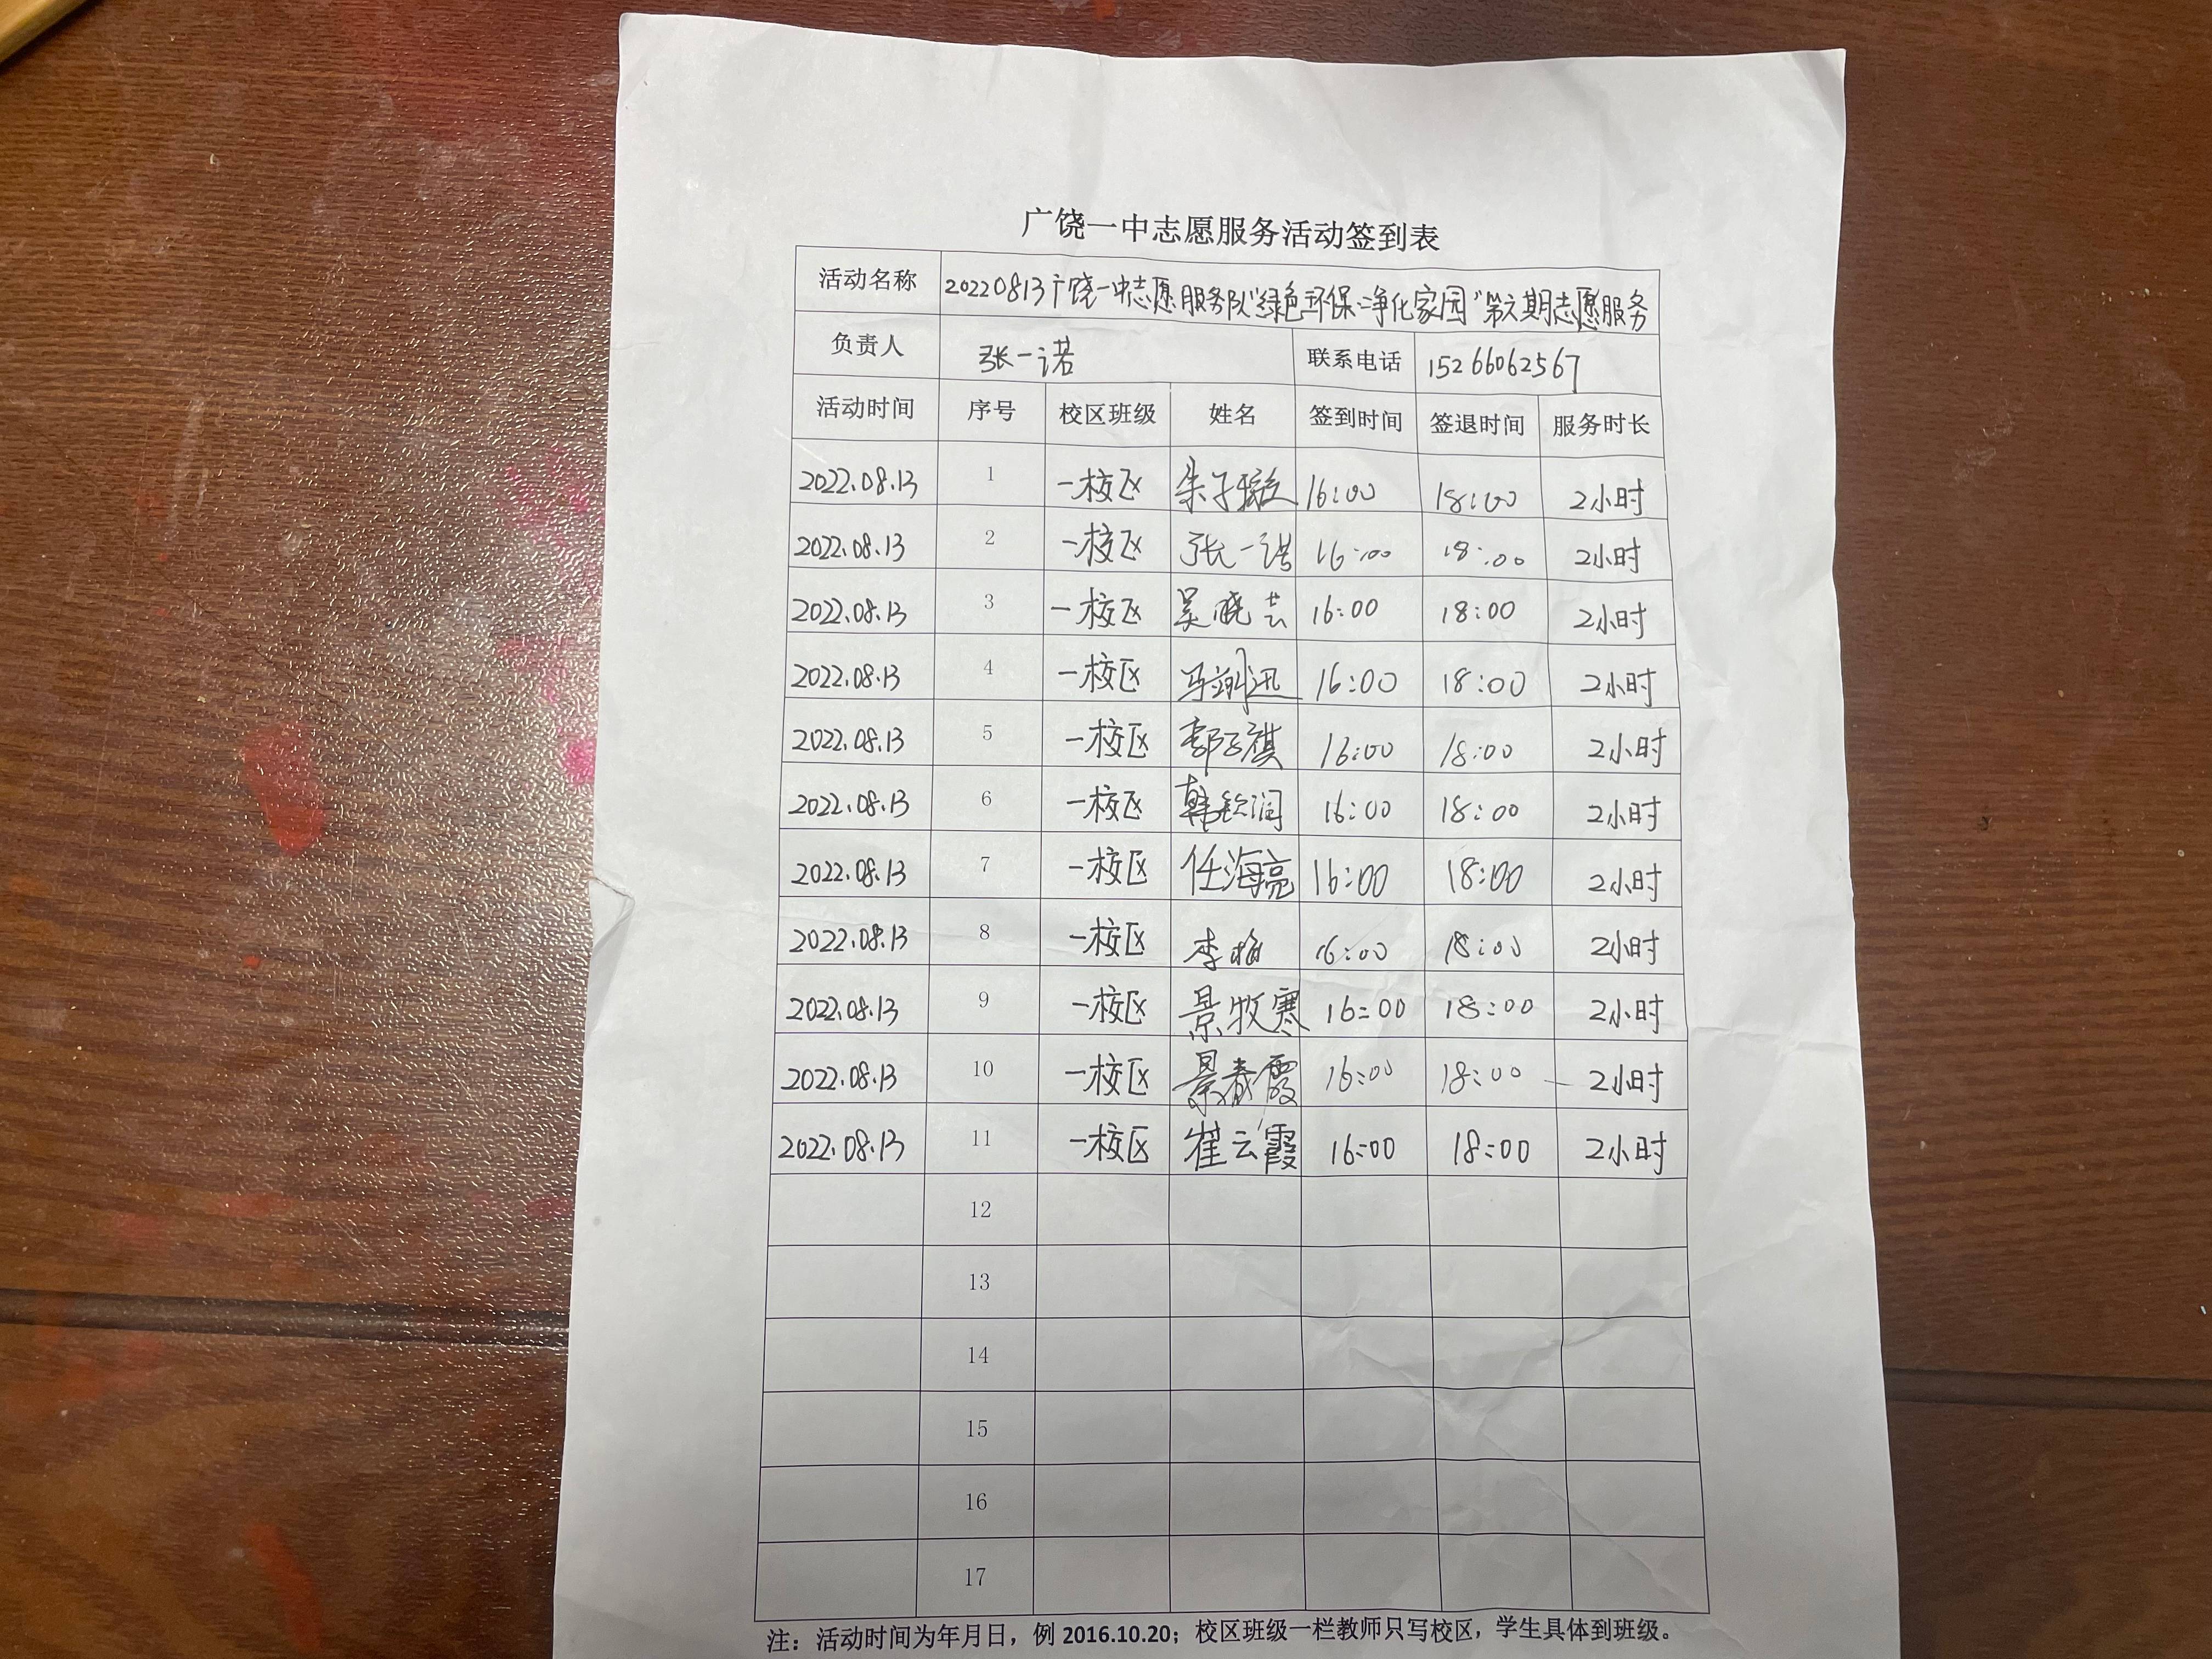 广饶一中志愿服务活动签到表
活动名称 20220813广饶一中志愿服务队“绿色环保·净化家园”第六期志愿服务
负责人 张一诺 联系电话 15266062567
活动时间 序号 校区班级 姓名 签到时间 签退时间 服务时长
2022.08.13 1 一校区 朱子璇 16:00 18:00 2小时
2022.08.13 2 一校区 张一诺 16:00 18:00 2小时
2022.08.13 3 一校区 吴晓芸 16:00 18:00 2小时
2022.08.13 4 一校区 16:00 18:00 2小时
2022.08.13 5 一校区 16:00 18:00 2小时
2022.08.13 6 一校区 16:00 18:00 2小时
2022.08.13 7 一校区 任海亮 16:00 18:00 2小时
2022.08.13 8 一校区 李梅 16:00 18:00 2小时
2022.08.13 9 一校区 景牧寒 16:00 18:00 2小时
2022.08.13 10 一校区 景春霞 16:00 18:00 2小时
2022.08.13 11 一校区 崔云霞 16:00 18:00 2小时
12
13
14
15
16
17
注：活动时间为年月日，例 2016.10.20；校区班级一栏教师只写校区，学生具体到班级。